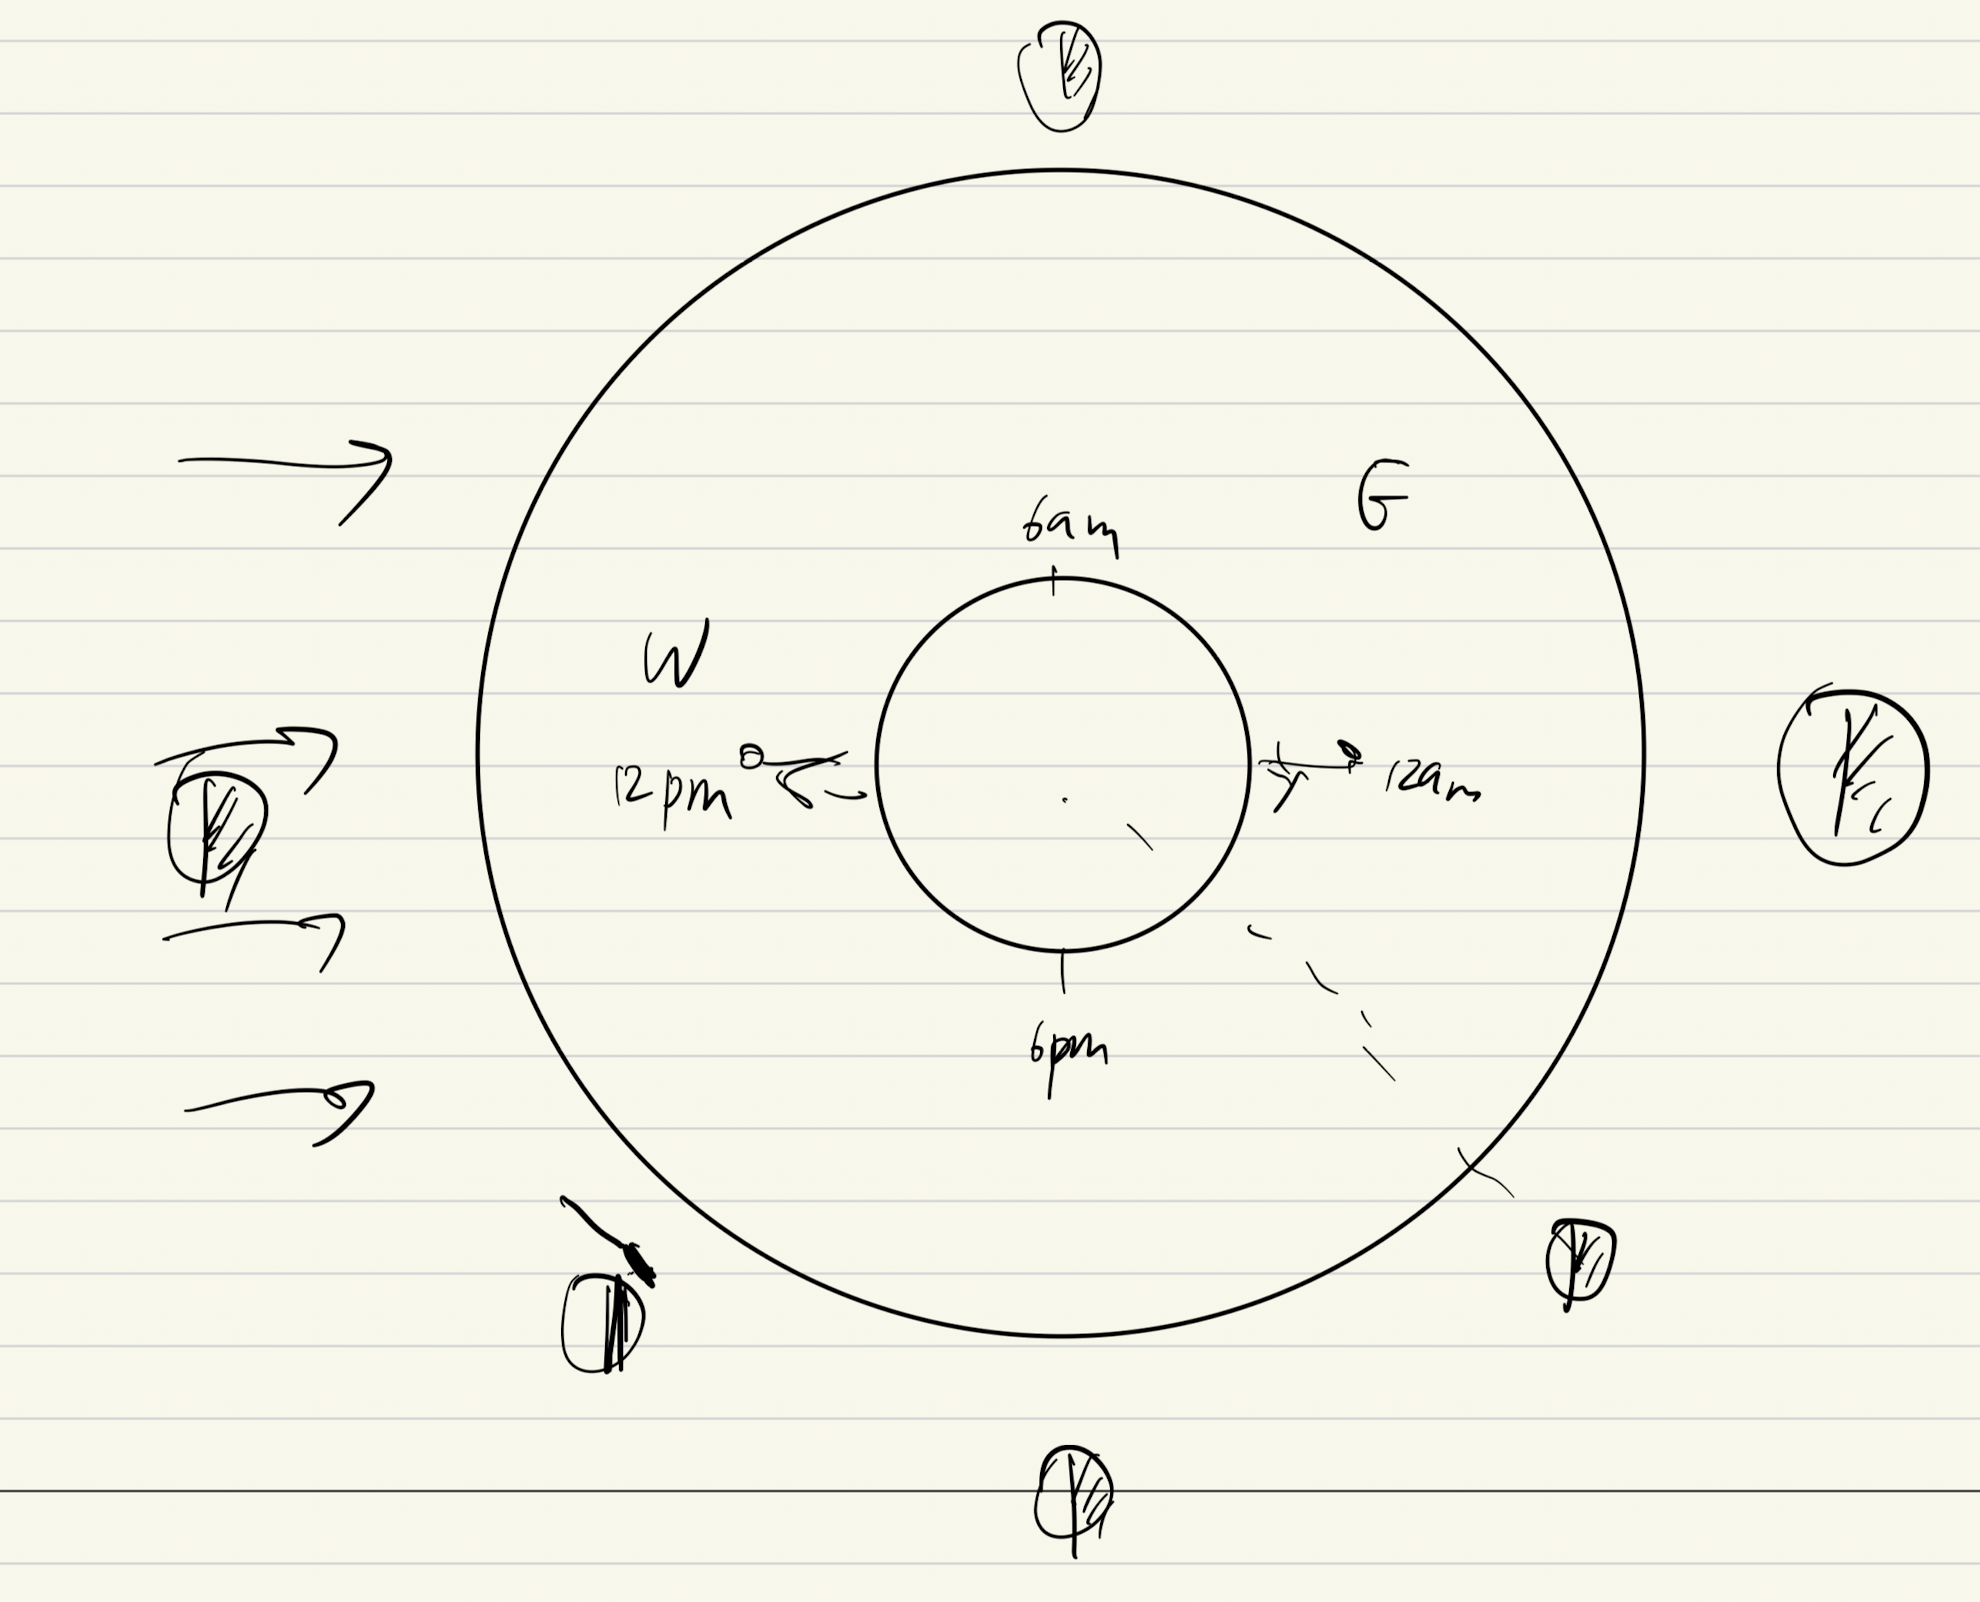 6am
W
12pm
12am
6pm